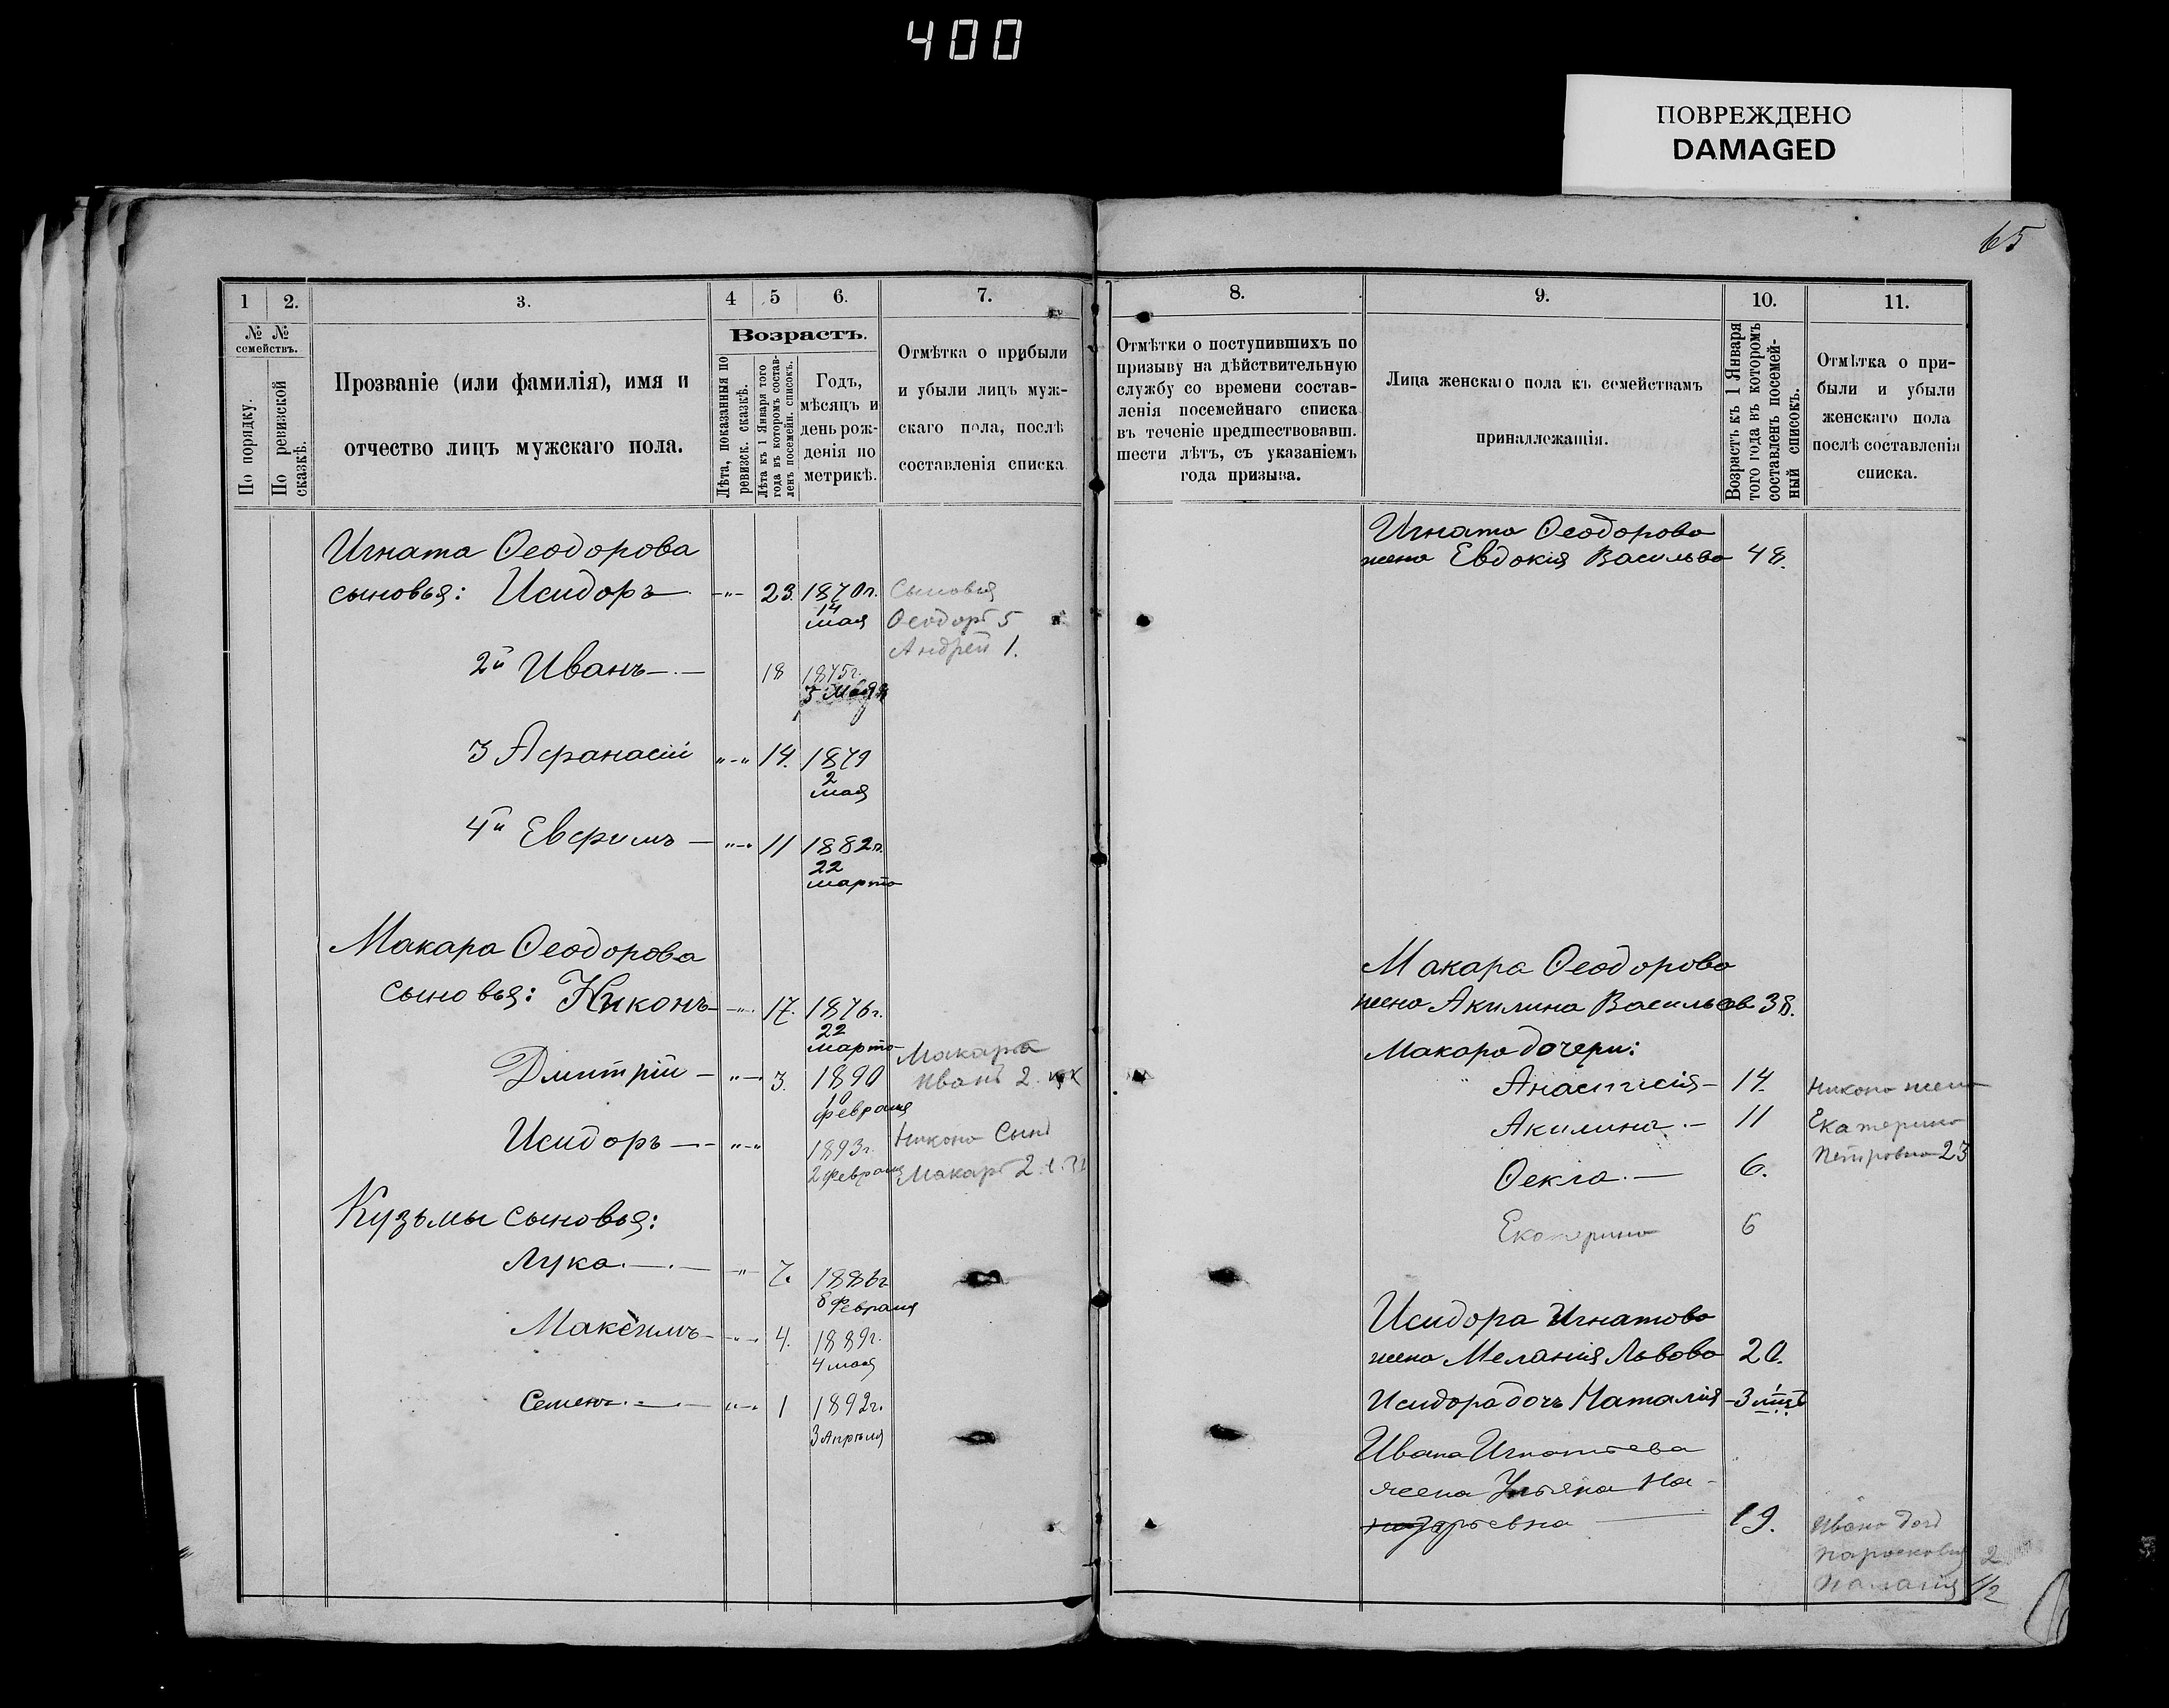 400
ПОВРЕЖДЕНО
DAMAGED
65
1
2.
3.
4
5
6.
7.
№ №
семействъ.
По порядку.
По ревизской
сказкѣ.
Прозваніе (или фамилія), имя и
отчество лицъ мужскаго пола.
Возрастъ.
Лѣта, показанныя по
ревизск. сказкѣ.
Лѣта къ 1 Января того
года въ которомъ состав-
ленъ посемейн. списокъ.
Годъ,
мѣсяцъ и
день рож-
денія по
метрикѣ.
Отмѣтка о прибыли
и убыли лицъ муж-
скаго пола, послѣ
составленія списка
Игната Ѳеодорова
сыновья: Исидоръ 23. 1870г.
14
мая
Сыновья
Ѳеодоръ 5
Андрей 1.
2й Иванъ 18 1875г.
3 Аѳанасій 14. 1879
2
мая
4й Евфимъ 11 1882г.
22
марта
Макара Ѳеодорова
сыновья: Никонъ 17. 1876г.
22
марта
Макара
Иванъ 2
Дмитрій 3. 1890
февраля
Исидоръ 1893г.
2 февраля
Никона Сынъ
Макаръ 2
Кузьмы сыновья:
Лука 7. 1886г
8 Февраля
Максимъ 4. 1889г.
4 мая
Семенъ 1 1892г.
3 Апрѣля
8.
9.
10.
11.
Отмѣтки о поступившихъ по
призыву на дѣйствительную
службу со времени состав-
ленія посемейнаго списка
въ теченіе предшествовавш.
шести лѣтъ, съ указаніемъ
года призыва.
Лица женскаго пола къ семействамъ
принадлежащія.
Возрастъ къ 1 Января
того года въ которомъ
составленъ посемей-
ный списокъ.
Отмѣтка о при-
были и убыли
женскаго пола
послѣ составленія
списка.
Игната Ѳеодорова
жена Евдокія Васильва 48.
Макара Ѳеодорова
жена Акилина Васильев 38.
Макара дочери:
Анастасія 14.
Акилина 11
Ѳекла 6.
Екатерина 6
Никона жена
Екатерина
Петровна 23
Исидора Игнатова
жена Меланія Львова 20.
Исидора дочь Наталія 3 мѣс
Ивана Игнатьева
жена Ульяна На-
зарьевна 19.
Ивана доч
Парасковья 2
1/2